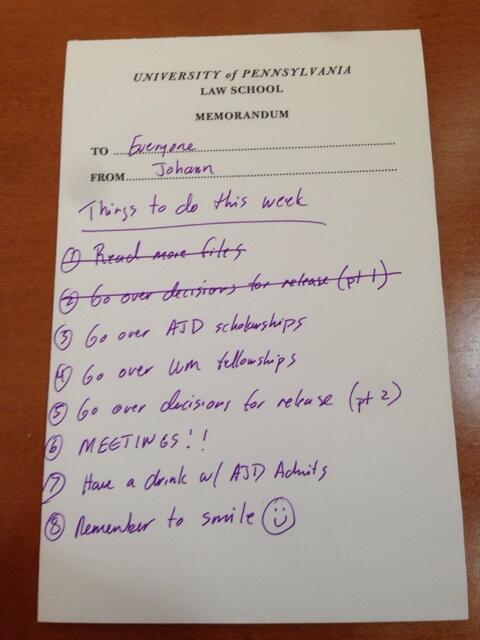 UNIVERSITY of PENNSYLVANIA
LAW SCHOOL
MEMORANDUM
TO Everyone
FROM Johann
Things to do this week
1 Read more files
2 Go over decisions for release (pt 1)
3 Go over AJD scholarships
4 Go over LLM fellowships
5 Go over decisions for release (pt 2)
6 MEETINGS!!
7 Have a drink w/ AJD Admits
8 Remember to smile